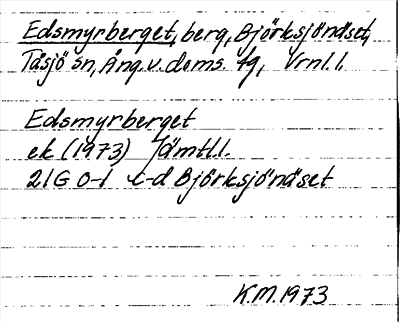 Edsmyrberget, berg, Björksjönäset,
Tåsjö sn, Ång.v.doms. fg, Vrnl.l.
Edsmyrberget
ek (1973) Jämtl.l.
21G 0-1 c-d Björksjönäset
K.M. 1973